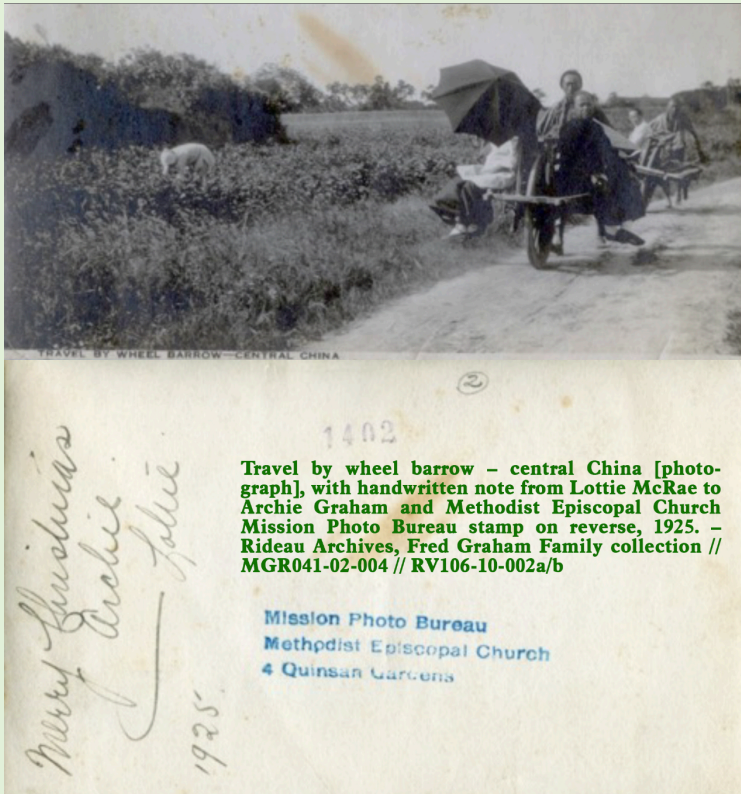 TRAVEL BY WHEEL BARROW—CENTRAL CHINA
2
1402
Travel by wheel barrow – central China [photo-
graph], with handwritten note from Lottie McRae to
Archie Graham and Methodist Episcopal Church
Mission Photo Bureau stamp on reverse, 1925. –
Rideau Archives, Fred Graham Family collection //
MGR041-02-004 // RV106-10-002a/b
Mission Photo Bureau
Methodist Episcopal Church
4 Quinsan Gardens
Merry Christmas
Archie
Lottie
1925.